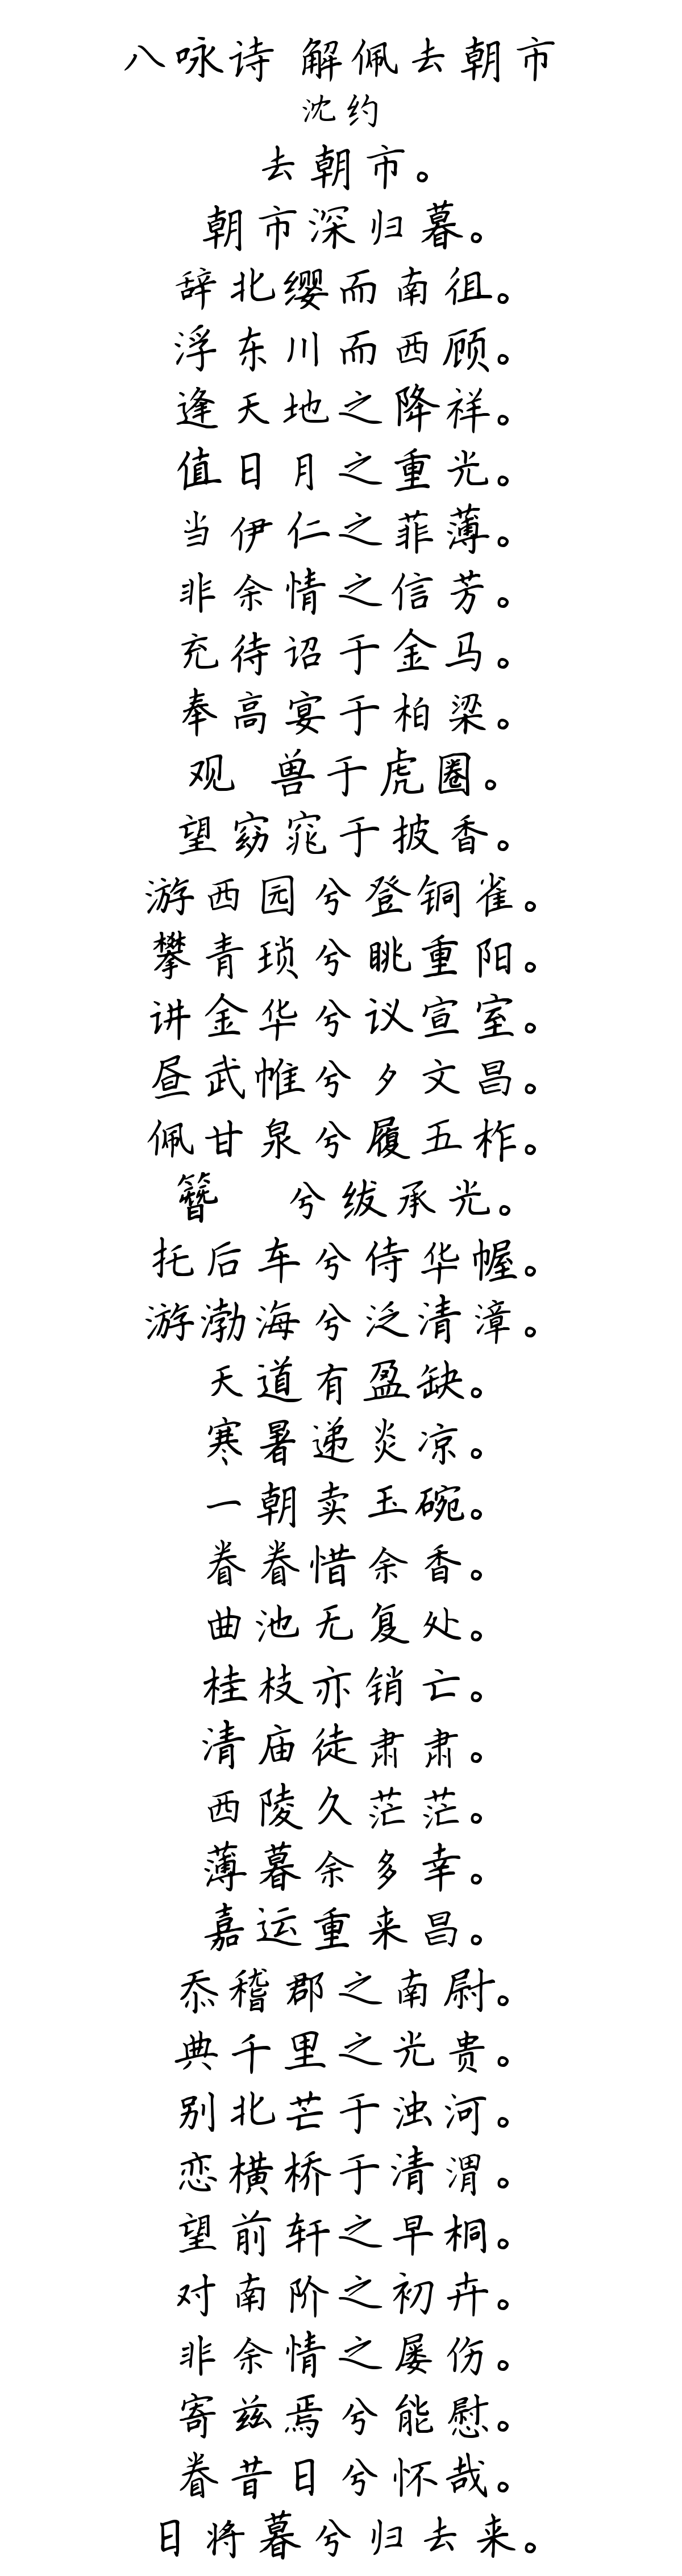 八咏诗 解佩去朝市
沈约
去朝市。
朝市深归暮。
辞北缨而南徂。
浮东川而西顾。
逢天地之降祥。
值日月之重光。
当伊仁之菲薄。
非余情之信芳。
充待诏于金马。
奉高宴于柏梁。
观 兽于虎圈。
望窈窕于披香。
游西园兮登铜雀。
攀青琐兮眺重阳。
讲金华兮议宣室。
昼武帷兮夕文昌。
佩甘泉兮履五柞。
簪 兮绂承光。
托后车兮侍华幄。
游渤海兮泛清漳。
天道有盈缺。
寒暑递炎凉。
一朝卖玉碗。
眷眷惜余香。
曲池无复处。
桂枝亦销亡。
清庙徒肃肃。
西陵久茫茫。
薄暮余多幸。
嘉运重来昌。
忝稽郡之南尉。
典千里之光贵。
别北芒于浊河。
恋横桥于清渭。
望前轩之早桐。
对南阶之初卉。
非余情之屡伤。
寄兹焉兮能慰。
眷昔日兮怀哉。
日将暮兮归去来。